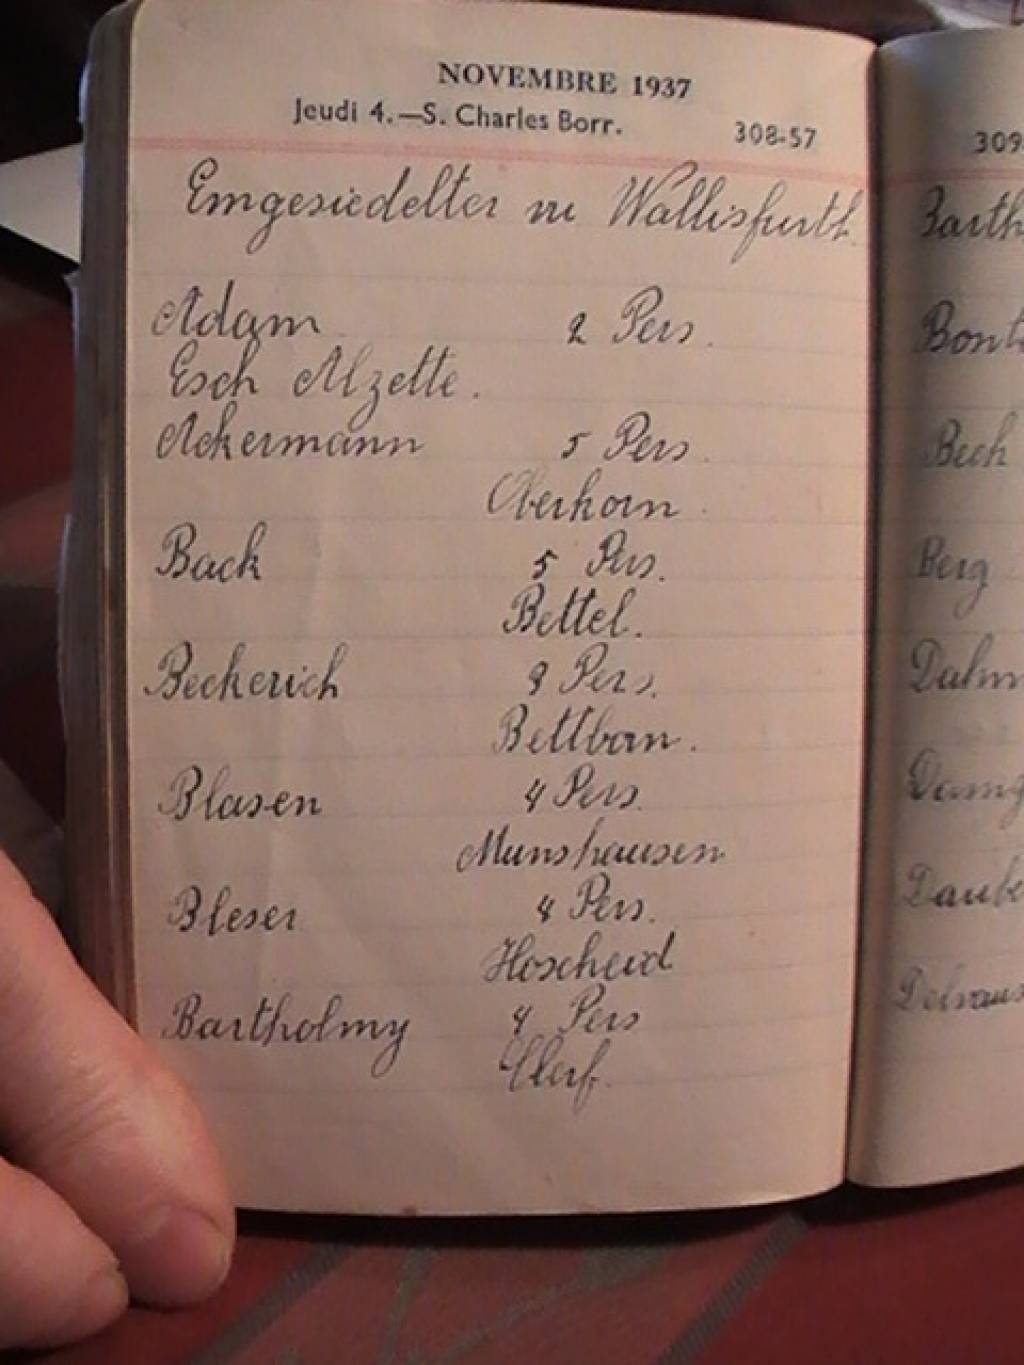 NOVEMBRE 1937
Jeudi 4.—S. Charles Borr.
308-57
Emgesiedelter in Wallisfurth.
Adam 2 Pers.
Esch Alzette.
Ackermann 5 Pers.
Oberkorn.
Back 5 Pers.
Bettel.
Beckerich 9 Pers.
Bettborn.
Blasen 4 Pers.
Munshausen
Bleser 4 Pers.
Hoscheid
Bartholmy 4 Pers
Clerf.
309
Barth
Bont
Bech
Berg
Dahm
Damg
Daube